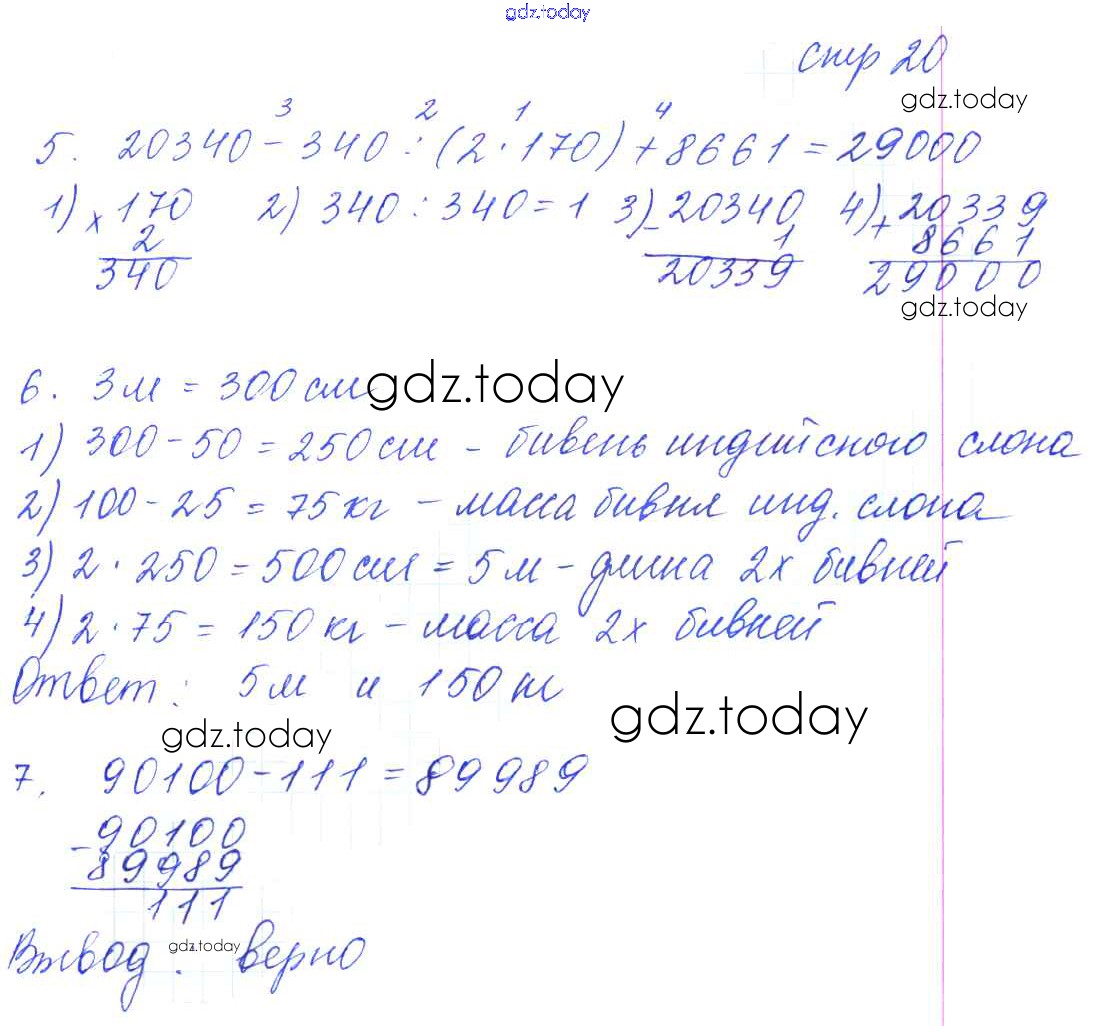 gdz.today
стр 20
gdz.today
3 2 1 4
5. 20340 - 340 : (2 · 170) + 8661 = 29000
1) × 170 2) 340 : 340 = 1 3) - 20340 4) + 20339
2 1 8661
340 20339 29000
gdz.today
6. 3 м = 300 см gdz.today
1) 300 - 50 = 250 см - бивень индийского слона
2) 100 - 25 = 75 кг - масса бивня инд. слона
3) 2 · 250 = 500 см = 5 м - длина 2х бивней
4) 2 · 75 = 150 кг - масса 2х бивней
Ответ: 5 м и 150 кг
gdz.today gdz.today
7. 90100 - 111 = 89989
- 90100
89989
111
Вывод: gdz.today верно